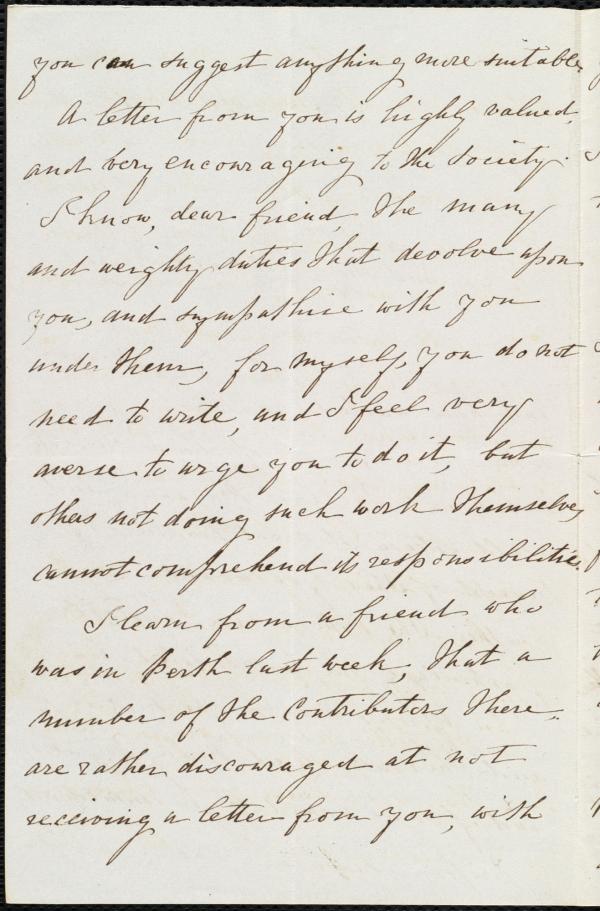 you can suggest anything more suitable.
A letter from you is highly valued,
and very encouraging to the Society.
I know, dear friend, the many
and weighty duties that devolve upon
you, and sympathise with you
under them, for myself, you do not
need to write, and I feel very
averse to urge you to do it, but
others not doing such work themselves,
cannot comprehend its responsibilities.
I learn from a friend who
was in Perth last week, that a
number of the Contributors there,
are rather discouraged at not
receiving a letter from you, with